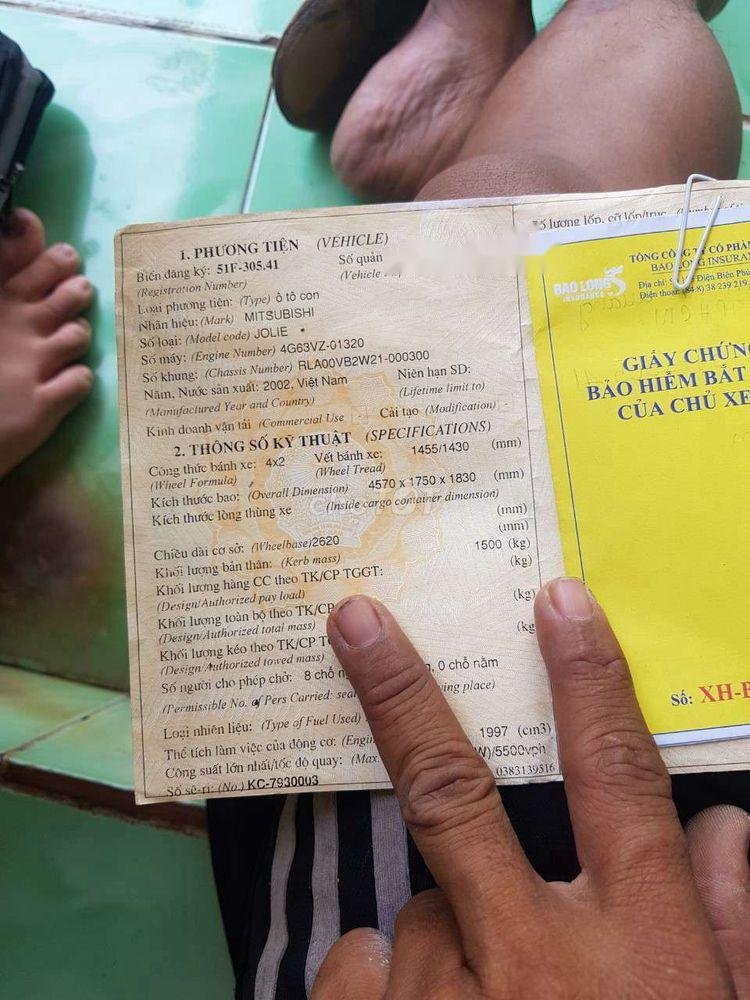 1. PHƯƠNG TIỆN (VEHICLE)
Biển đăng ký: 51F-305.41 Số quản
(Registration Number) (Vehicle
Loại phương tiện: (Type) ô tô con
Nhãn hiệu: (Mark) MITSUBISHI
Số loại: (Model code) JOLIE
Số máy: (Engine Number) 4G63VZ-01320
Số khung: (Chassis Number) RLA00VB2W21-000300
Năm, Nước sản xuất: 2002, Việt Nam Niên hạn SD:
(Manufactured Year and Country) (Lifetime limit to)
Kinh doanh vận tải (Commercial Use Cải tạo (Modification)
2. THÔNG SỐ KỸ THUẬT (SPECIFICATIONS)
Công thức bánh xe: 4x2 Vết bánh xe: 1455/1430 (mm)
(Wheel Formula) (Wheel Tread)
Kích thước bao: (Overall Dimension) 4570 x 1750 x 1830 (mm)
Kích thước lòng thùng xe (Inside cargo container dimension)
(mm)
Chiều dài cơ sở: (Wheelbase)2620 (mm)
Khối lượng bản thân: (Kerb mass) 1500 (kg)
Khối lượng hàng CC theo TK/CP TGGT: (kg)
(Design/Authorized pay load)
Khối lượng toàn bộ theo TK/CP (kg)
(Design/Authorized total mass)
Khối lượng kéo theo TK/CP (kg
(Design/Authorized towed mass)
Số người cho phép chở: 8 chỗ 0 chỗ nằm
(Permissible No. of Pers Carried: place)
Loại nhiên liệu: (Type of Fuel Used)
Thể tích làm việc của động cơ: 1997 (cm3)
Công suất lớn nhất/tốc độ quay: (Max. W)/5500vph
Số sê-ri: (No.) KC-7930003 0383139516
Số lượng lốp, cỡ lốp/trục
BAO LONG
INSURANCE
TỔNG CÔNG TY CỔ PHẦN
BAO LONG INSURAN
Địa chỉ: Điện Biên
Điện thoại: (84.8) 38 239 219
GIẤY CHỨNG
BẢO HIỂM BẮT
CỦA CHỦ XE
Số: XH-